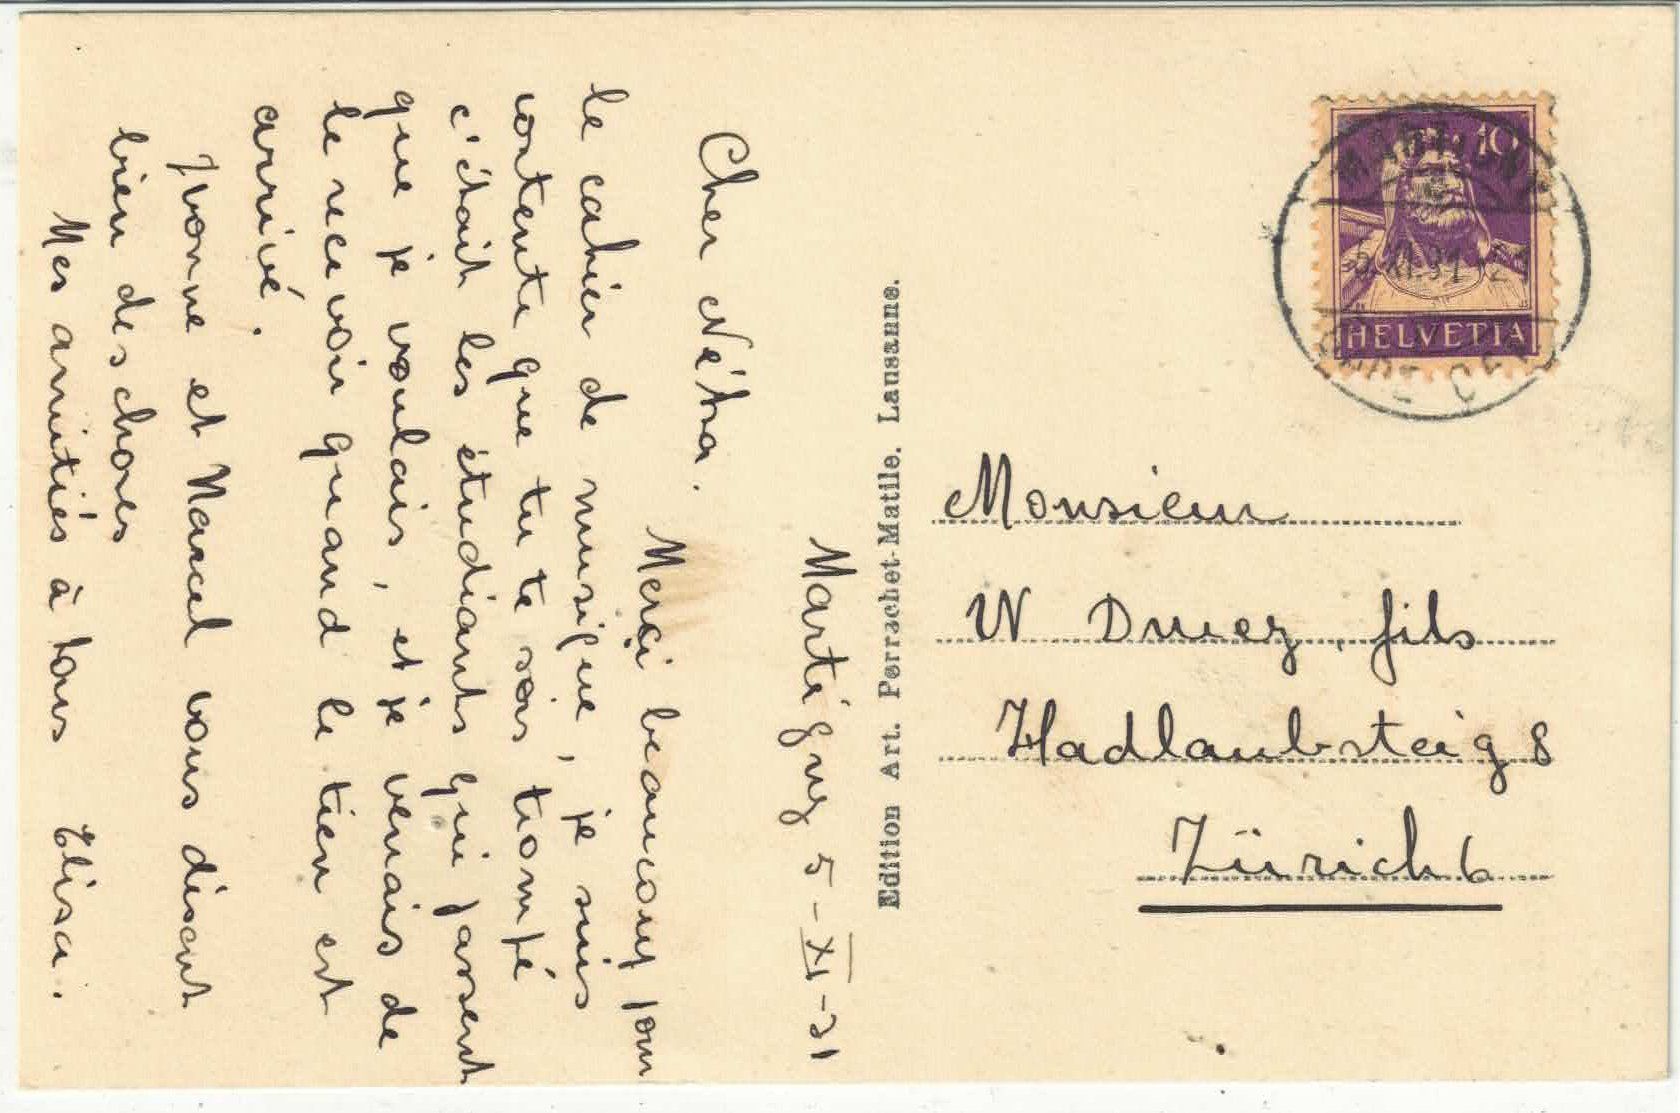 Martigny 5-XI-31
Cher Nétra.
Merci beaucoup pour
le cahier de musique, je suis
contente que tu te sois trompé
c'était les étudiants qui passent
que je voulais, et je venais de
le recevoir quand le tien est
arrivé.
Yvonne et Marcel vous disent
bien des choses
Mes amitiés à tous Elisa.
Edition Art. Perrochet-Matile. Lausanne.
10
HELVETIA
Monsieur
W Druey, fils
Hadlaubsteig 8
Zürich 6